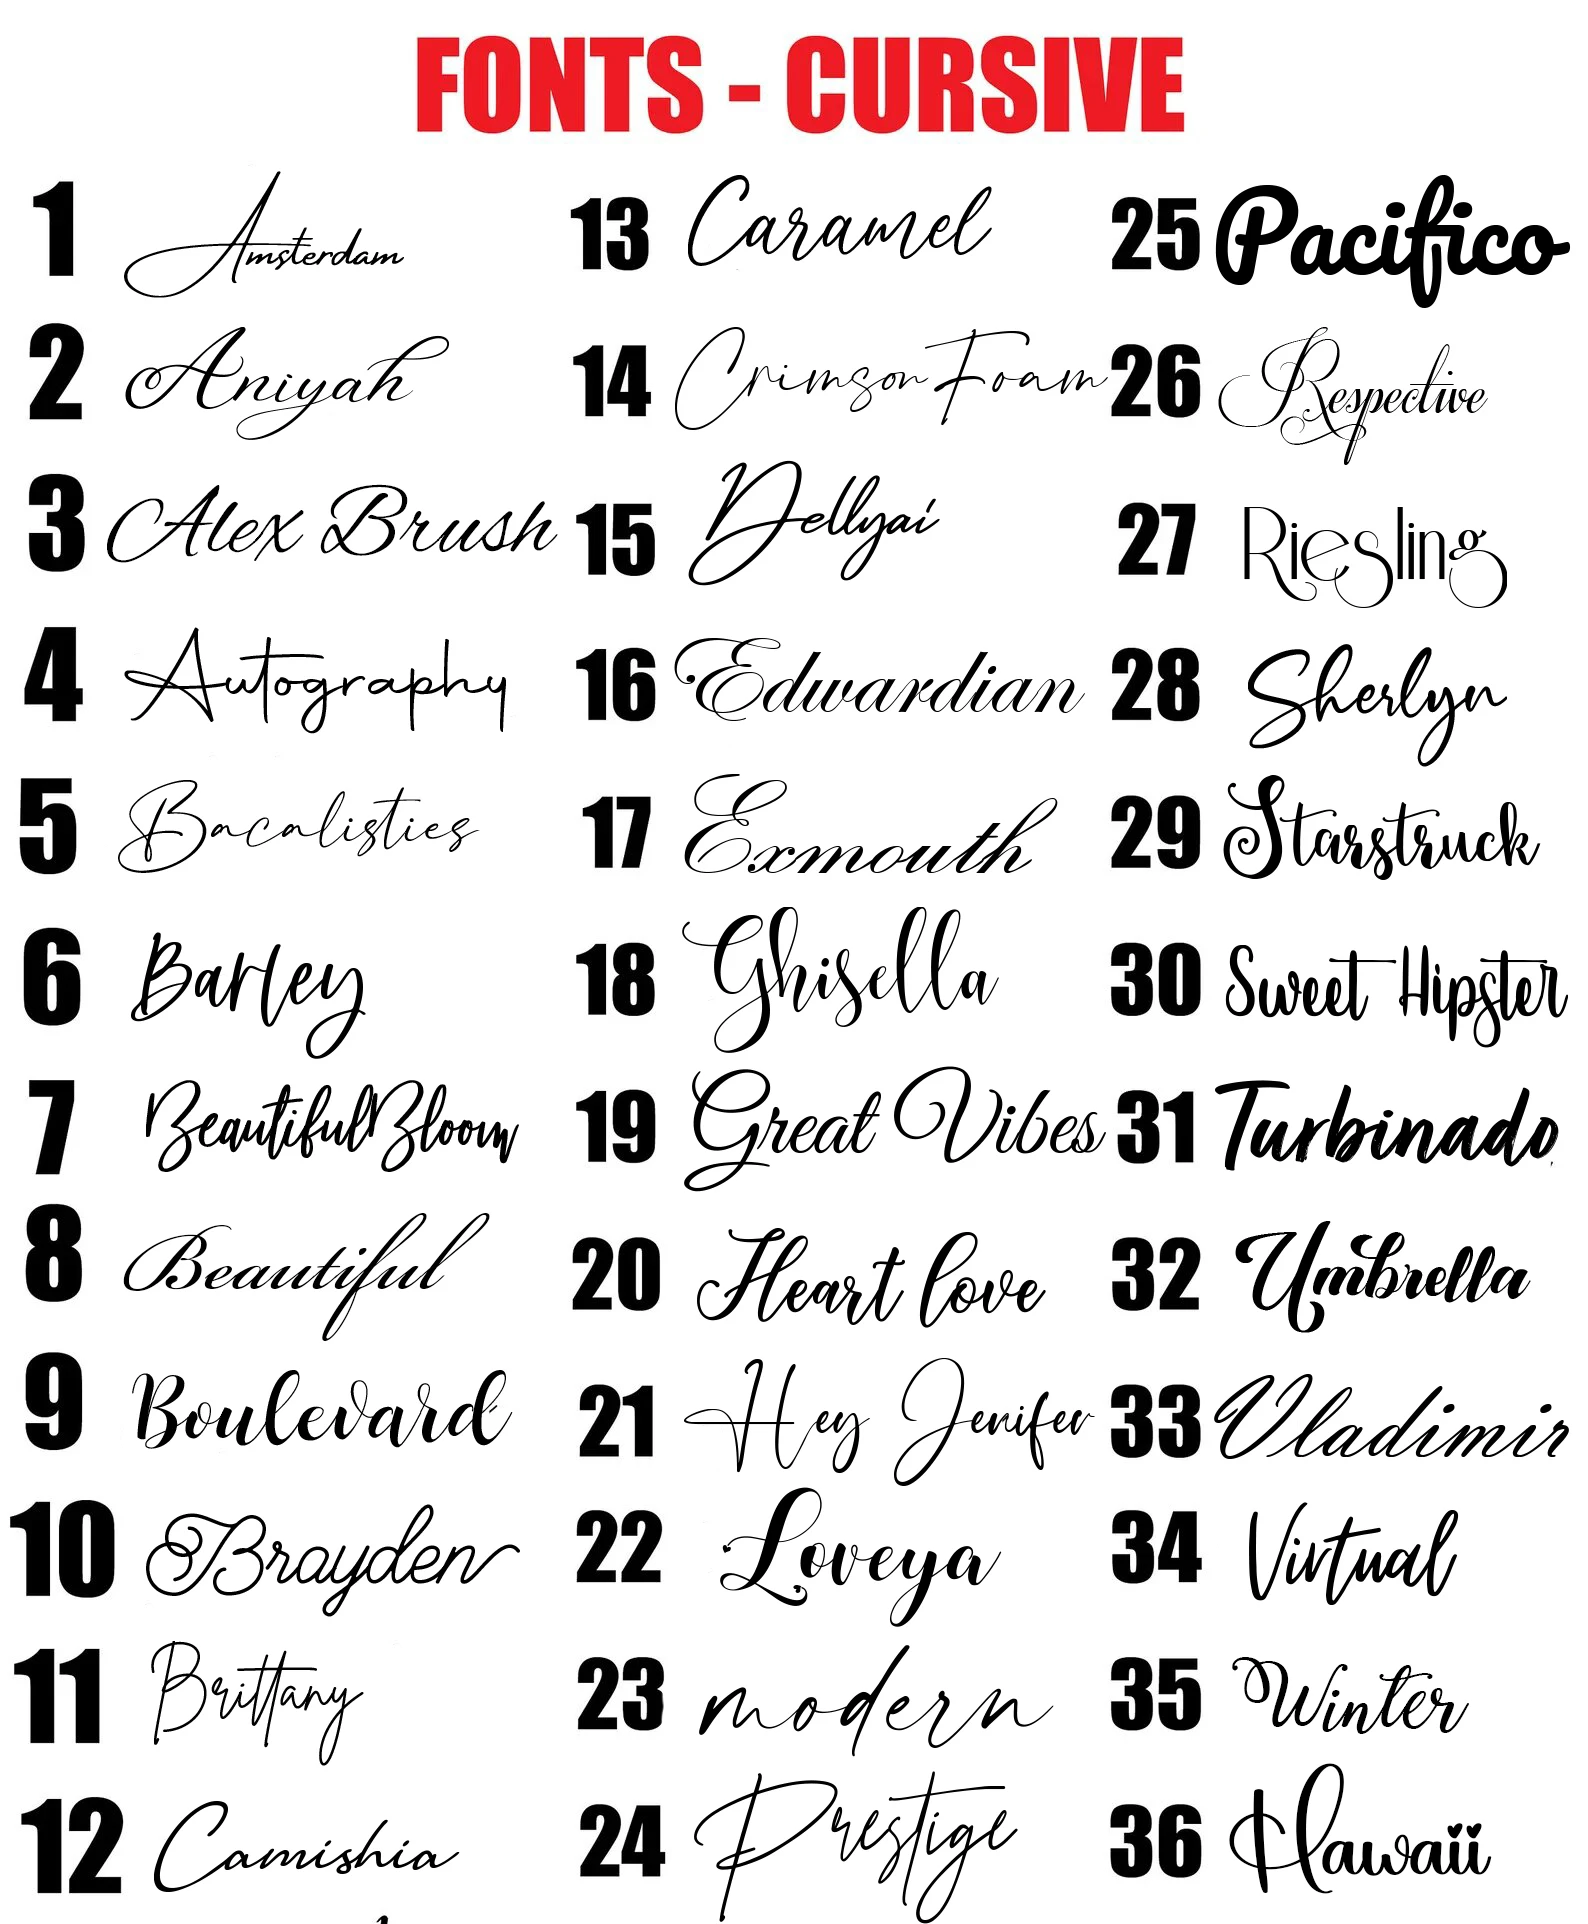 FONTS - CURSIVE
1 Amsterdam
2 Aniyah
3 Alex Brush
4 Autography
5 Bacalisties
6 Barley
7 BeautifulBloom
8 Beautiful
9 Boulevard
10 Brayden
11 Brittany
12 Camishia
13 Caramel
14 Crimson Foam
15 Dellyai
16 Edwardian
17 Exmouth
18 Ghisella
19 Great Vibes
20 Heart love
21 Hey Jenifer
22 Loveya
23 modern
24 Prestige
25 Pacifico
26 Respective
27 Riesling
28 Sherlyn
29 Starstruck
30 Sweet Hipster
31 Turbinado
32 Umbrella
33 Vladimir
34 Virtual
35 Winter
36 Hawaii